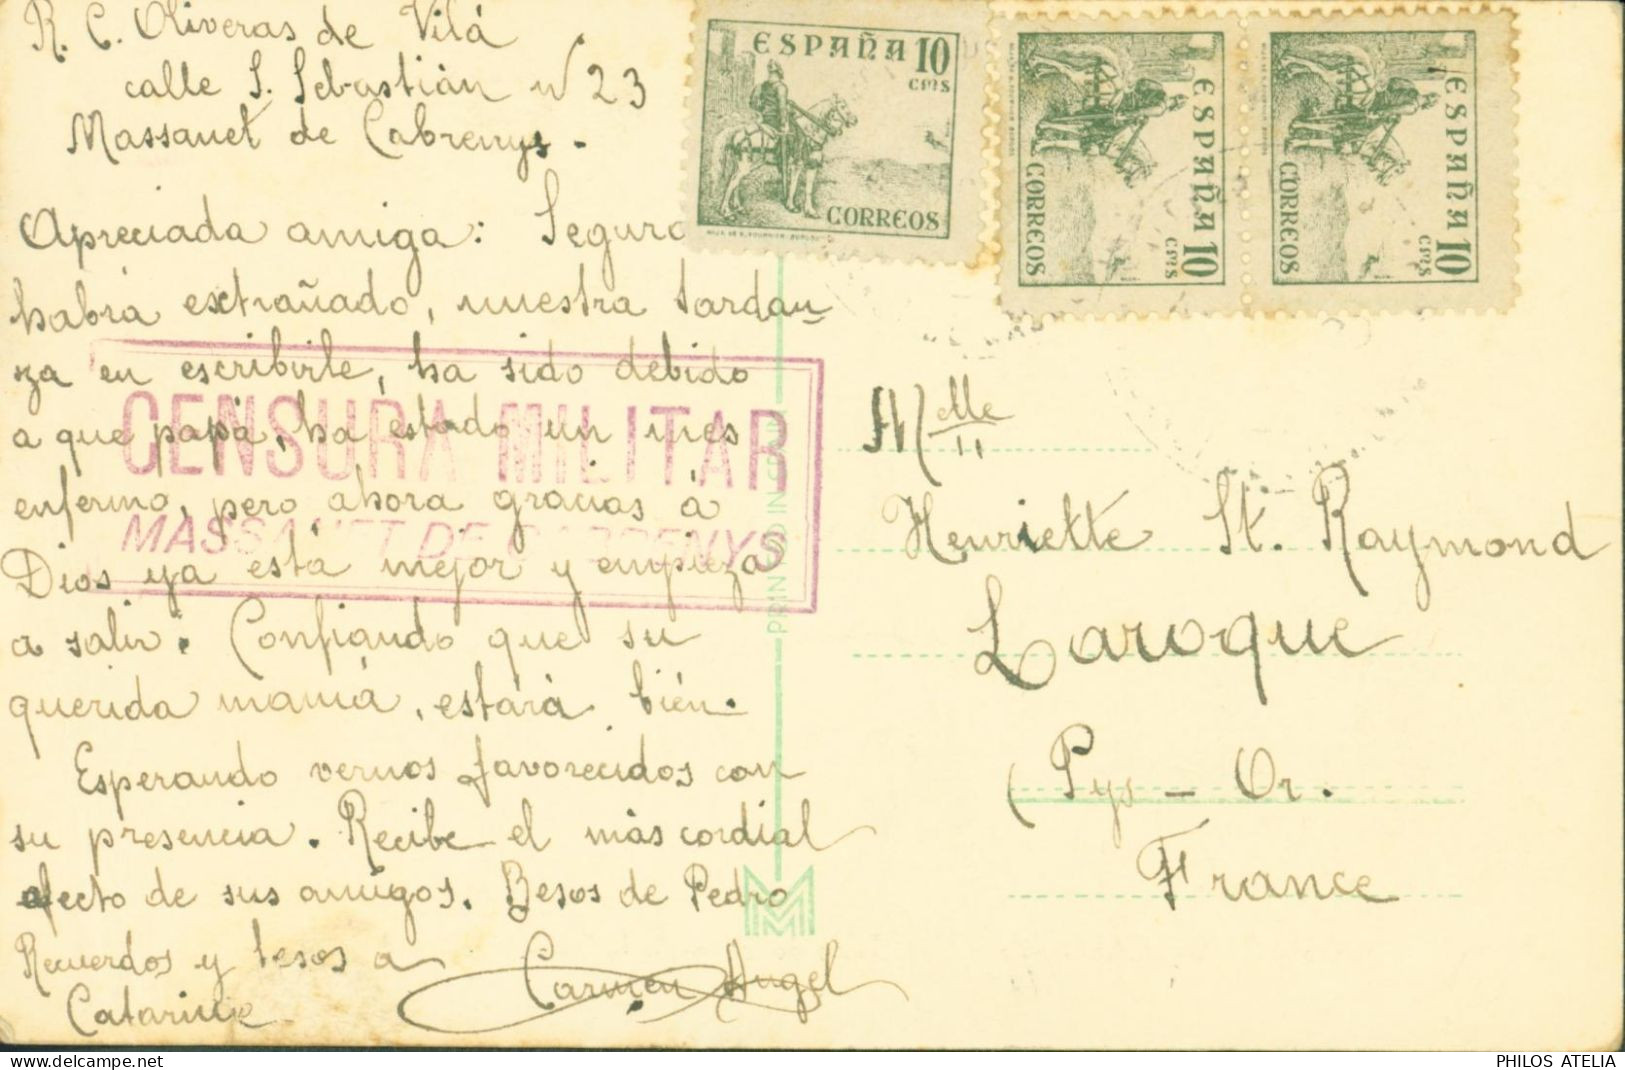 R. C. Oliveras de Vilá
calle S. Sebastián nº 23
Massanet de Cabrenys.
Apreciada amiga: Segura
habrá extrañado, nuestra tardan-
za en escribirle, ha sido debido
a que papá, ha estado un mes
enfermo, pero ahora gracias á
Dios ya está mejor y empieza
a salir. Confiando que su
querida mamá, estará bién.
Esperando vernos favorecidos con
su presencia. Recibe el màs cordial
afecto de sus amigos. Besos de Pedro
Recuerdos y besos a
Catarine
Carmen Angel
CENSURA MILITAR
MASSANET DE CABRENYS
ESPAÑA 10
CTMS
CORREOS
ESPAÑA 10
CTMS
CORREOS
ESPAÑA 10
CTMS
CORREOS
PRINTED IN SPAIN
M
Melle
Henriette St. Raymond
Laroque
(Pys - Or.
France
PHILOS ATELIA